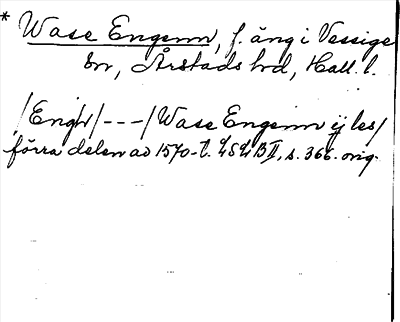 * Wase Engenn, f. äng i Vessige
sn, Årstads hd, Hall. l.
/Engh/ --- / Wase Engenn ij les/
förra delen av 1570-t. LSLB II, s. 366. orig.